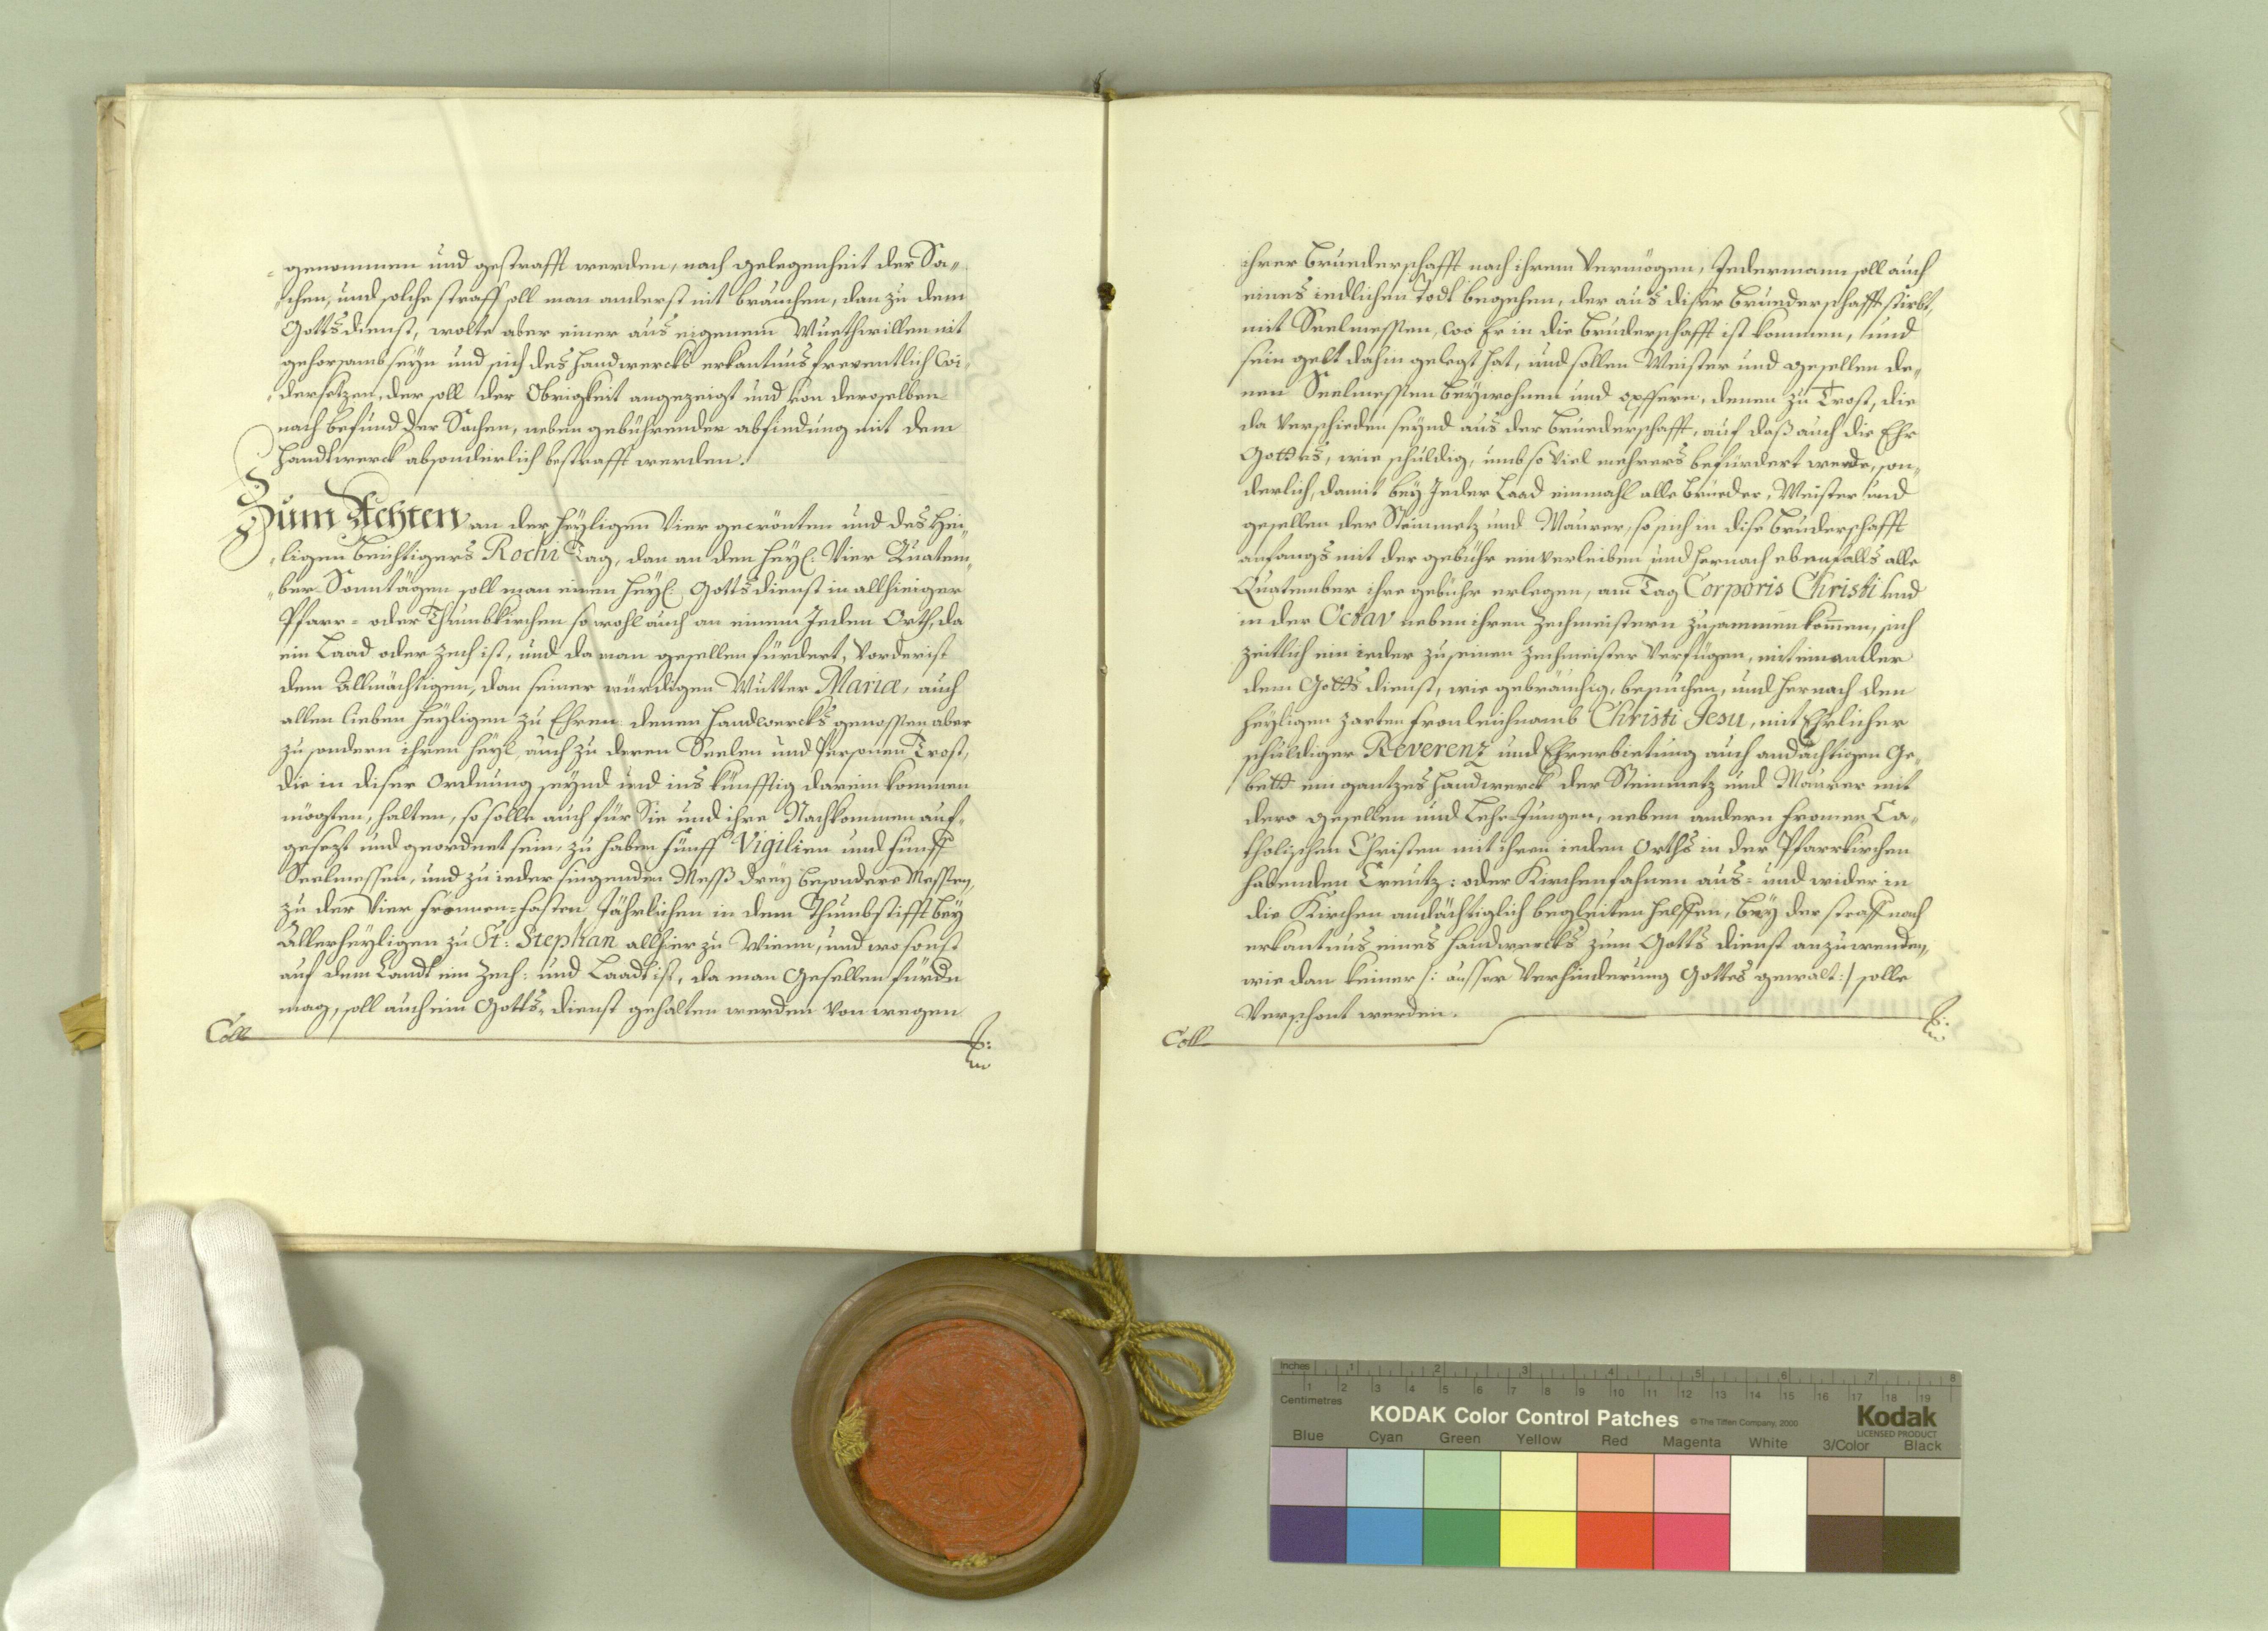 genommen und gestrafft werden, nach gelegenheit der Sa„
„chen, und solche straff soll man anderst nit brauchen, dan zu dem
Gottsdienst, wolte aber einer aus eigenem Muethwillen nit
gehorsamb seyn und sich des Handwercks erkantnus freventlich wi„
„dersetzen, der soll der Obrigkeit angezeigt und von deroselben
nach befund der Sachen, neben gebührender abfindung mit dem
Handtwerck absonderlich bestrafft werden.
Zum Achten an der Heyligen Vier gecrönten und des Hei„
„ligen beichtigers Rochi Tag, dan an den Heyl: Vier Quatem„
„ber Sonntägen soll man einen Heyl: Gottsdienst in allhieiger
Pfarr- oder Thumbkirchen sowohl auch an einem Jeden Orth, da
ein Laad oder Zech ist, und da man gesellen fürdert, Vorderist
dem Allmächtigen, dan seiner würdigen Mutter Mariæ, auch
allen lieben Heyligen zu Ehren: denen Handwercks genossen aber
zu sondern ihren Heyl, auch zu deren Seelen und Personen Trost,
die in diser Ordnung seynd und ins künfftig darein kommen
möchten, halten, so solle auch für Sie und ihre Nachkommen auf„
gesezt und geordnet sein, zu haben fünff Vigilien und fünff
Seelmessen, und zu ieder singenden Meß drey besondere Messen,
zu der Vier fronnen-fasten Jährlichen in dem Thumbstifft bey
Allerheyligen zu St: Stephan allhier zu Wienn, und wo sonst
auf dem Landt ein Zech: und Laadt ist, da man Gesellen fürdern
mag, soll auch ein Gotts-dienst gehalten werden von wegen
Coll
ihrer Bruederschafft nach ihrem Vermögen, Jedermann soll auch
eines iedlichen Todt begehen, der aus diser Bruederschafft stirbt,
mit Seelmessen, wo Er in die Bruderschafft ist kommen, und
sein gelt dahin gelegt hat, und sollen Meister und gesellen de„
nen Seelmessen beywohnen und opffern, denen zu Trost, die
da verschieden seynd aus der Bruederschafft, auf daß auch die Ehr
Gottes, wie schuldig, umb so viel mehrers befürdert werde, son„
derlich, damit bey Jeder Laad einmahl alle Brüeder, Meister und
gesellen der Steinmetz und Maurer, so sich in dise Bruderschafft
anfangs mit der gebühr einverleiben und hernach ebenfalls alle
Quatember ihre gebühr erlegen, am Tag Corporis Christi und
in der Octav neben ihren Zechmeistern zusammen kom̄en, sich
zeitlich ein ieder zu seinen Zechmeister verfügen, miteinander
dem Gotts dienst, wie gebräuchig, besuchen, und hernach den
Heyligen zarten fronleichnamb Christi Jesu, mit Ehrlicher
schuldiger Reverenz und Ehrerbietung auch andächtigen Ge„
bett ein gantzes Handwerck der Steinmetz und Maurer mit
dero gesellen und Lehr-Jungen, neben andern fromen Ca„
tholischen Christen mit ihren ieden Orths in der Pfarrkirchen
habenden Creutz: oder Kirchenfahnen aus- und wider in
die Kirchen andächtiglich begleiten helffen, bey der straff nach
erkantnus eines Handwercks zum Gotts dienst anzuwenden,
wie dan keiner /: ausser Verhinderung Gottes gewalt :/ solle
Verschont werden.
Coll
Inches 1 2 3 4 5 6 7 8
1 2 3 4 5 6 7 8 9 10 11 12 13 14 15 16 17 18 19
Centimetres
KODAK Color Control Patches © The Tiffen Company, 2000 Kodak
LICENSED PRODUCT
Blue Cyan Green Yellow Red Magenta White 3/Color Black